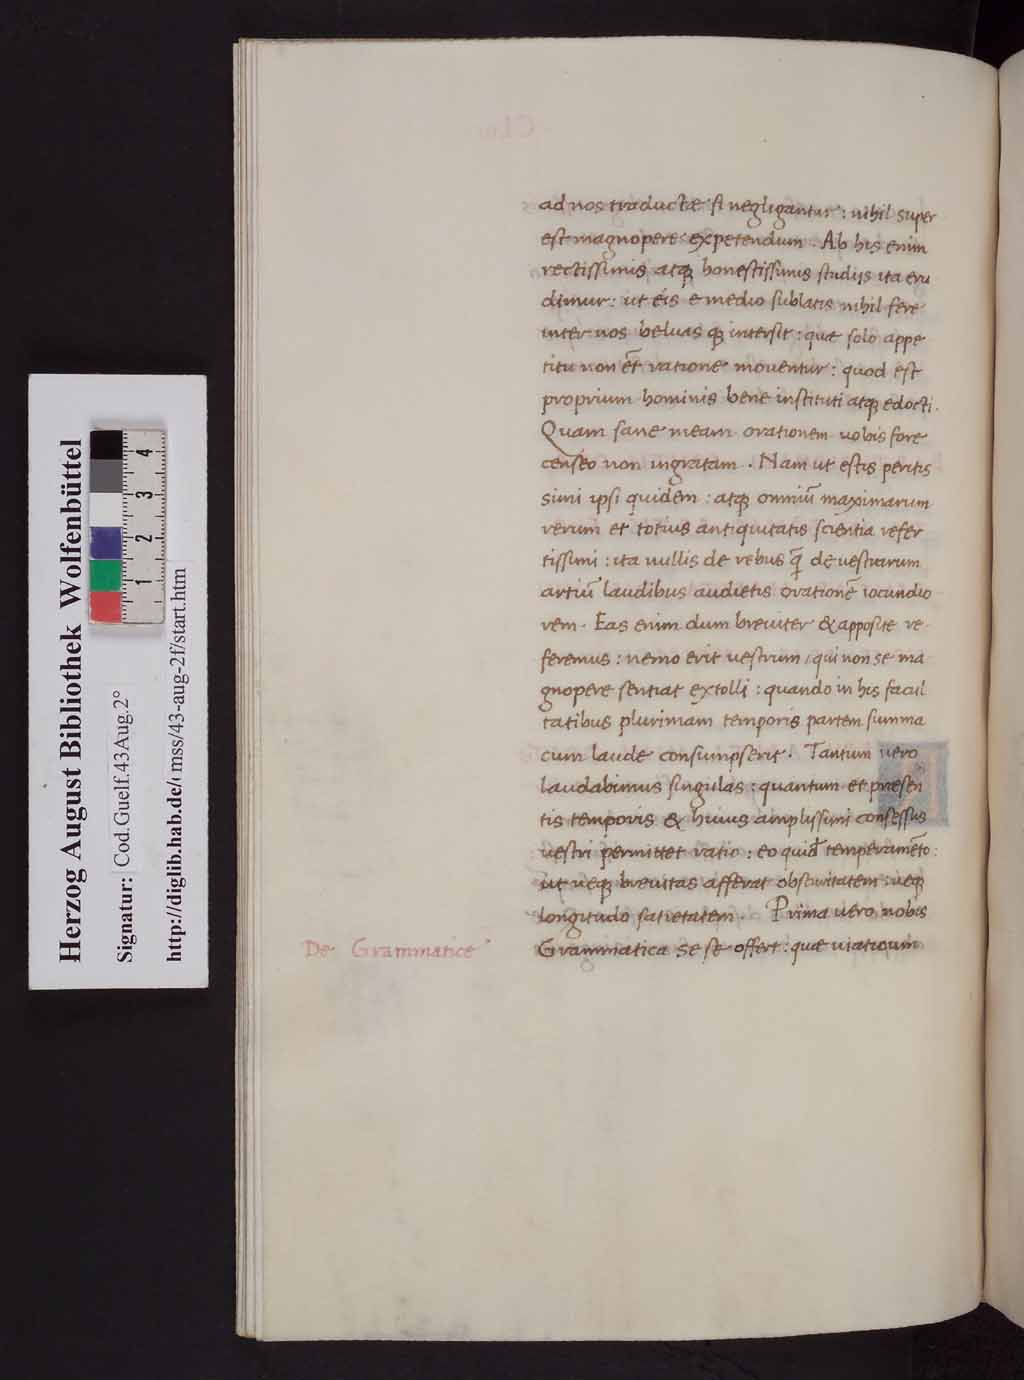 ad nos traductæ si negligantur : nihil super
est magnopere expetendum . Ab his enim
rectissimis atq honestissimis studijs ita eru
dimur : ut eis e medio sublatis nihil fere
inter nos beluas q intersit : quæ solo appe
titu non et ratione mouentur : quod est
proprium hominis bene instituti atq edocti .
Quam sane meam orationem uobis fore
censeo non ingratam . Nam ut estis peritis
simi ipsi quidem : atq omniū maximarum
rerum et totius antiquitatis scientia refer
tissimi : ita nullis de rebus q̄ de uestrarum
artiū laudibus audietis orationē iocundio
rem . Eas enim dum breuiter & apposite re
feremus : nemo erit uestrum , qui non se ma
gnopere sentiat extolli : quando in his facul
tatibus plurimam temporis partem summa
cum laude consumpserit . Tantum uero
laudabimus singulas : quantum et præsen
tis temporis & huius amplissimi consessus
uestri permittet ratio : eo quid temperamēto :
ut neq breuitas afferat obscuritatem : neq
longitudo satietatem . Prima uero nobis
De Grammatice Grammatica se se offert : quæ uiatioum
Herzog August Bibliothek Wolfenbüttel
Signatur: Cod.Guelf.43Aug.2°
http://diglib.hab.de/ mss/43-aug-2f/start.htm
1 2 3 4